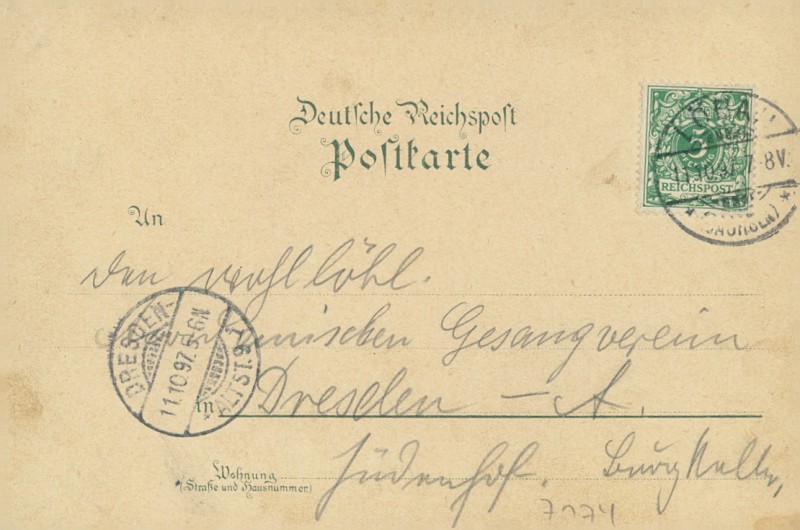 Deutsche Reichspost
Postkarte
5
REICHSPOST
LÖBAU
11.10.97. 7-8V.
(SACHSEN)
An
den wohllöbl.
Gesangverein
in Dresden – A.
DRESDEN-
11.10.97. 5-6N
ALTST. 1
Wohnung
(Straße und Hausnummer)
Jüdenhof. Burgkeller,